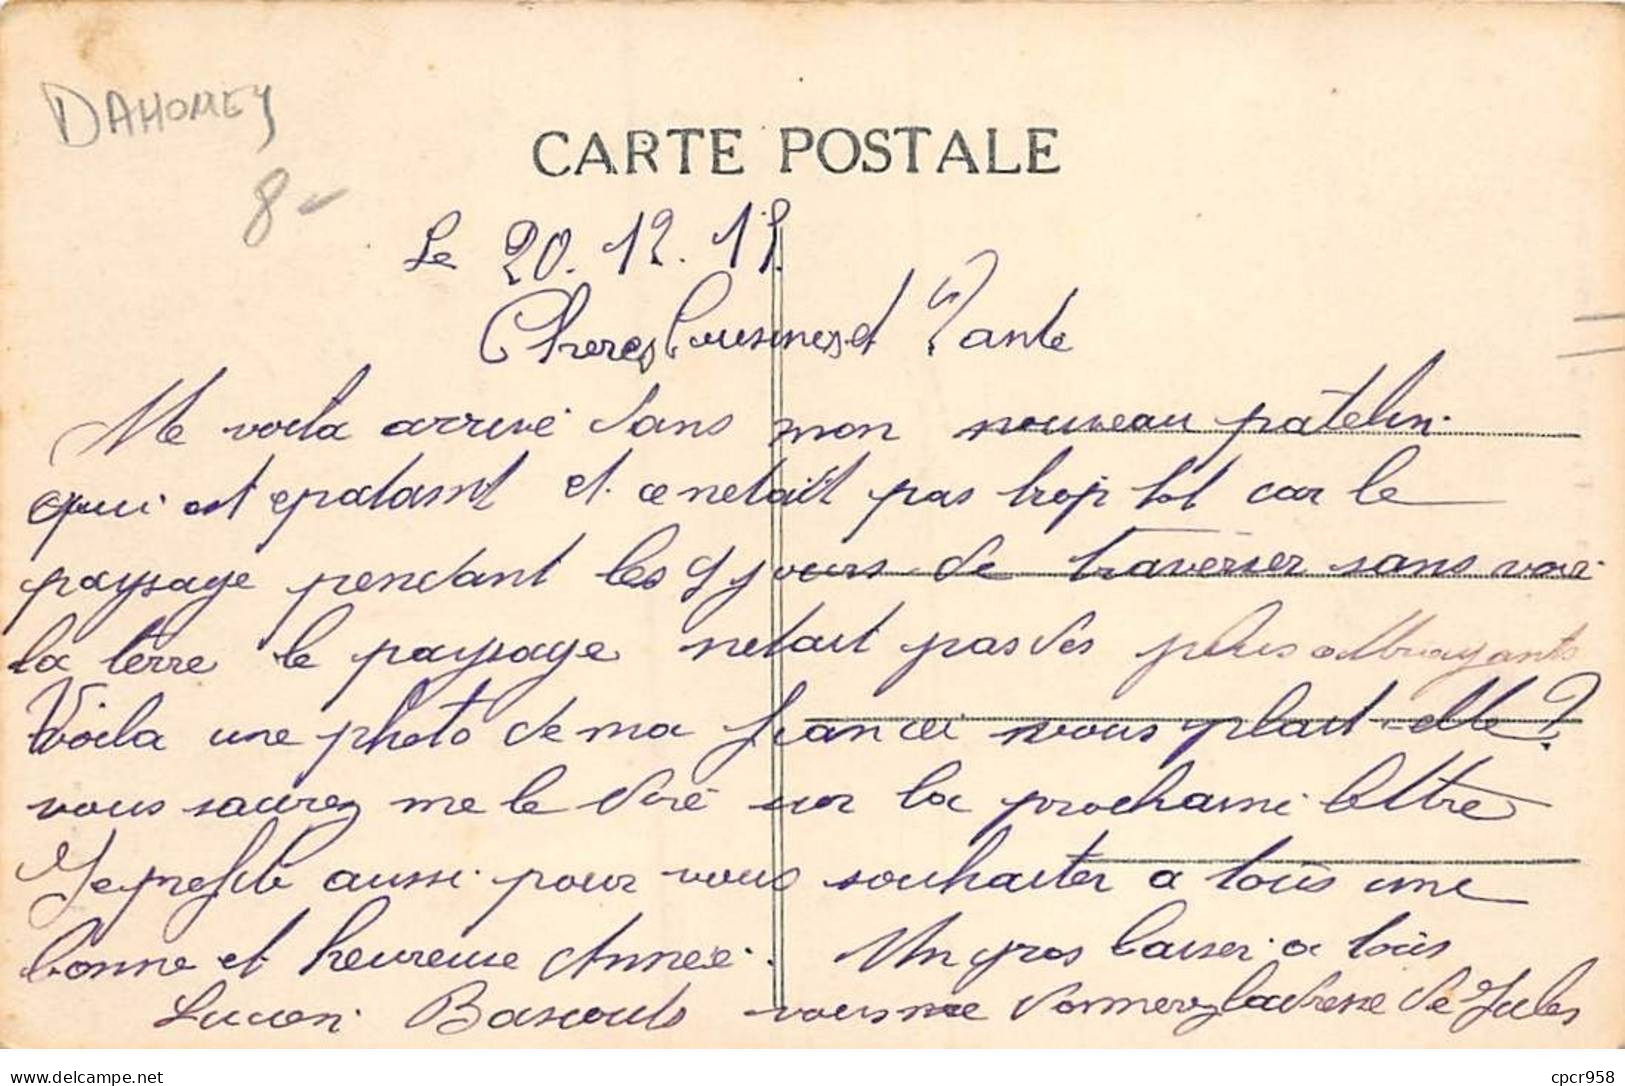 DAHOMEY
8 -
CARTE POSTALE
Le 20.12.17
Cheres Cousines et Tante
Me voila arrivé dans mon nouveau patelin
qui est epatant et ce netait pas trop tot car le
paysage pendant les 9 jours de traverser sans voir
la terre le paysage netait pas des plus attrayants
Voila une photo de ma fiancée vous plait-elle?
vous saurez me le dire sur la prochaine lettre
Je profite aussi pour vous souhaiter a tous une
bonne et heureuse Année. Un gros baiser a tous
Lucien vous me donnerez ladresse de Jules
delcampe.net
cpcr958